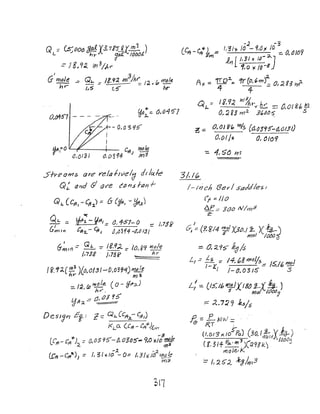 Q_L = (5,000 gal/hr)(3.785 l/gal)(m³/1000 l)
= 18.92 m³/hr
G' mole/hr = Q_L/1.5 = 18.92 m³/hr / 1.5 = 12.6 mole/hr
0.0457
y*_A = 0.0457
0.0395
y_A = 0
C_A, mole/m³
0.0131 0.0394
Streams are relatively dilute
Q_L and G' are constant
Q_L (C_A1 - C_A2) = G (y_A1 - y_A2)
Q_L/G_min = (y*_A - y_A1)/(C_A2 - C_A1) = (0.457-0)/(0.0394-0.0131) = 1.738
G'min = Q_L/1.738 = 18.92/1.738 = 10.89 mole/hr
18.92 (m³/hr)(0.0131-0.0394) mole/m³
= 12.6 mole/hr (0 - y_A2)
y_A2 = 0.0395
Design Eq: Z = Q_L (C_A2 - C_A1) / K_L a (C_A - C_A*)_lm
(C_A - C_A*)_2 = 0.0395 - 0.0305 = 9.0 x 10⁻³ mole/m³
(C_A - C_A*)_1 = 1.31 x 10⁻² - 0 = 1.31 x 10⁻² mole/m³
(C_A - C_A*)_lm = (1.31 x 10⁻² - 9.0 x 10⁻³) / ln[1.31 x 10⁻² / 9.0 x 10⁻³] = 0.0109
A = πD²/4 = π(0.6m)²/4 = 0.283 m²
Q_L = 18.92 m³/hr / 0.283 m² · hr/3600 s = 0.0186 m/s
Z = 0.0186 m/s (0.0395-0.0131) / 0.01/s 0.0109
= 4.50 m
3.16
1-inch Berl saddles:
C_f = 110
ΔP/Z = 300 N/m²
G'_1 = (9.814 mol/s)(30.1 g/mol)(kg/1000 g)
= 0.295 kg/s
L_1 = L_s/(1-x_1) = 14.68 mol/s / (1-0.0315) = 15.16 mol/s
L'_1 = (15.16 mol/s)(180 g/mol)(kg/1000 g)
= 2.729 kg/s
ρ_G = P/RT MW =
(1.013 x 10⁵ Pa)(30.1 g/mol)(kg/1000 g)
(8.314 Pa·m³/mole·K)(298 K)
= 1.252 kg/m³
317